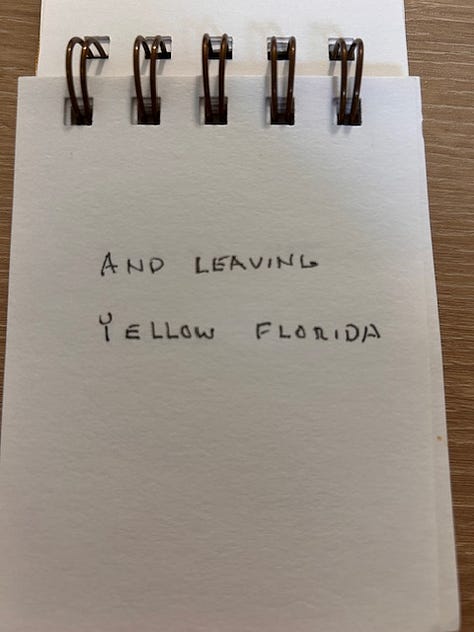 AND LEAVING
YELLOW FLORIDA